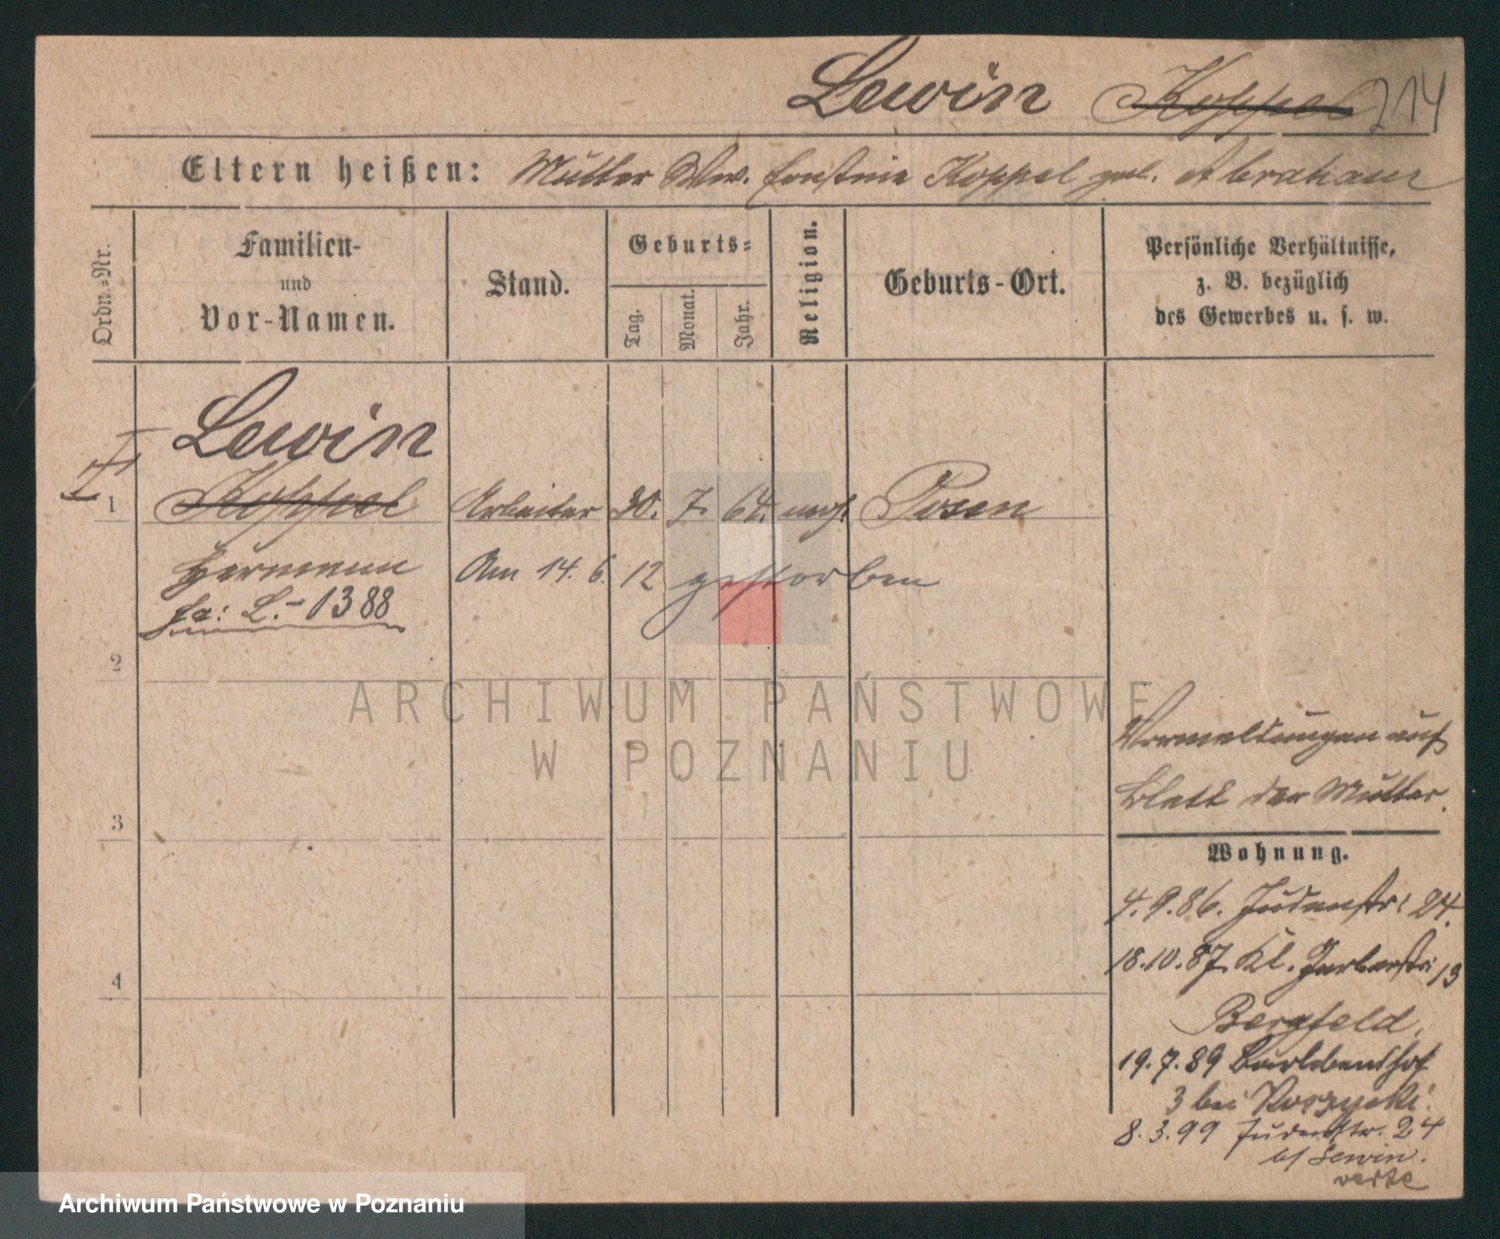 Lewin Koppel 214
Eltern heißen: Mutter Ww. Ernstine Koppel geb. Abraham
Ordn.-Nr.
Familien-
und
Vor-Namen.
Stand.
Geburts-
Tag.
Monat.
Jahr.
Religion.
Geburts-Ort.
Persönliche Verhältnisse,
z. B. bezüglich
des Gewerbes u. s. w.
Lewin
1 Koppel Arbeiter 30. 7. 64. mos. Posen
Hermann Am 14. 6. 12 gestorben
fa: L.-1388
2
3
4
ARCHIWUM PAŃSTWOWE
W POZNANIU
Vermeldungen auf
Blatt der Mutter.
Wohnung.
4.9.86. Judenstr: 24.
18.10.87 Kl. Gerberstr: 13
Bergfeld.
19.7.89 Barlebenshof
3 bei
8.3.99 Judenstr. 24
b/ Lewin.
verte
Archiwum Państwowe w Poznaniu